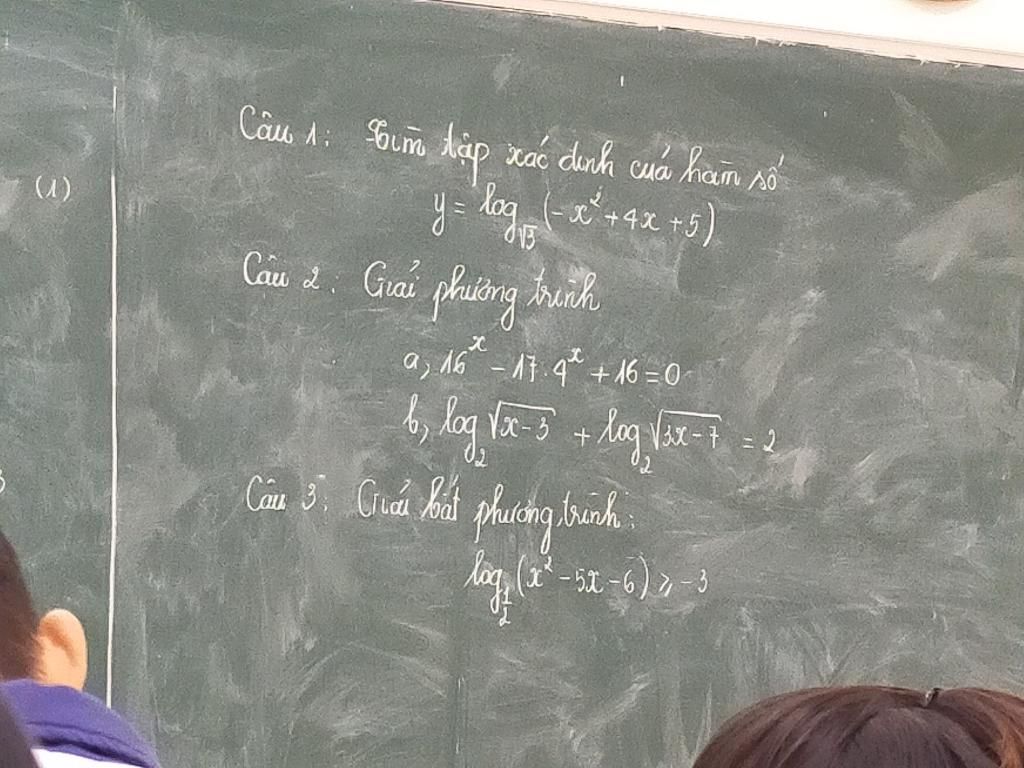 (1)
Câu 1: Tìm tập xác định của hàm số
y = log_{√3} (-x² + 4x + 5)
Câu 2: Giải phương trình
a, 16^x - 17.4^x + 16 = 0
b, log_2 √(x-3) + log_2 √(3x-7) = 2
Câu 3: Giải bất phương trình:
log_{1/2} (x² - 5x - 6) ≥ -3